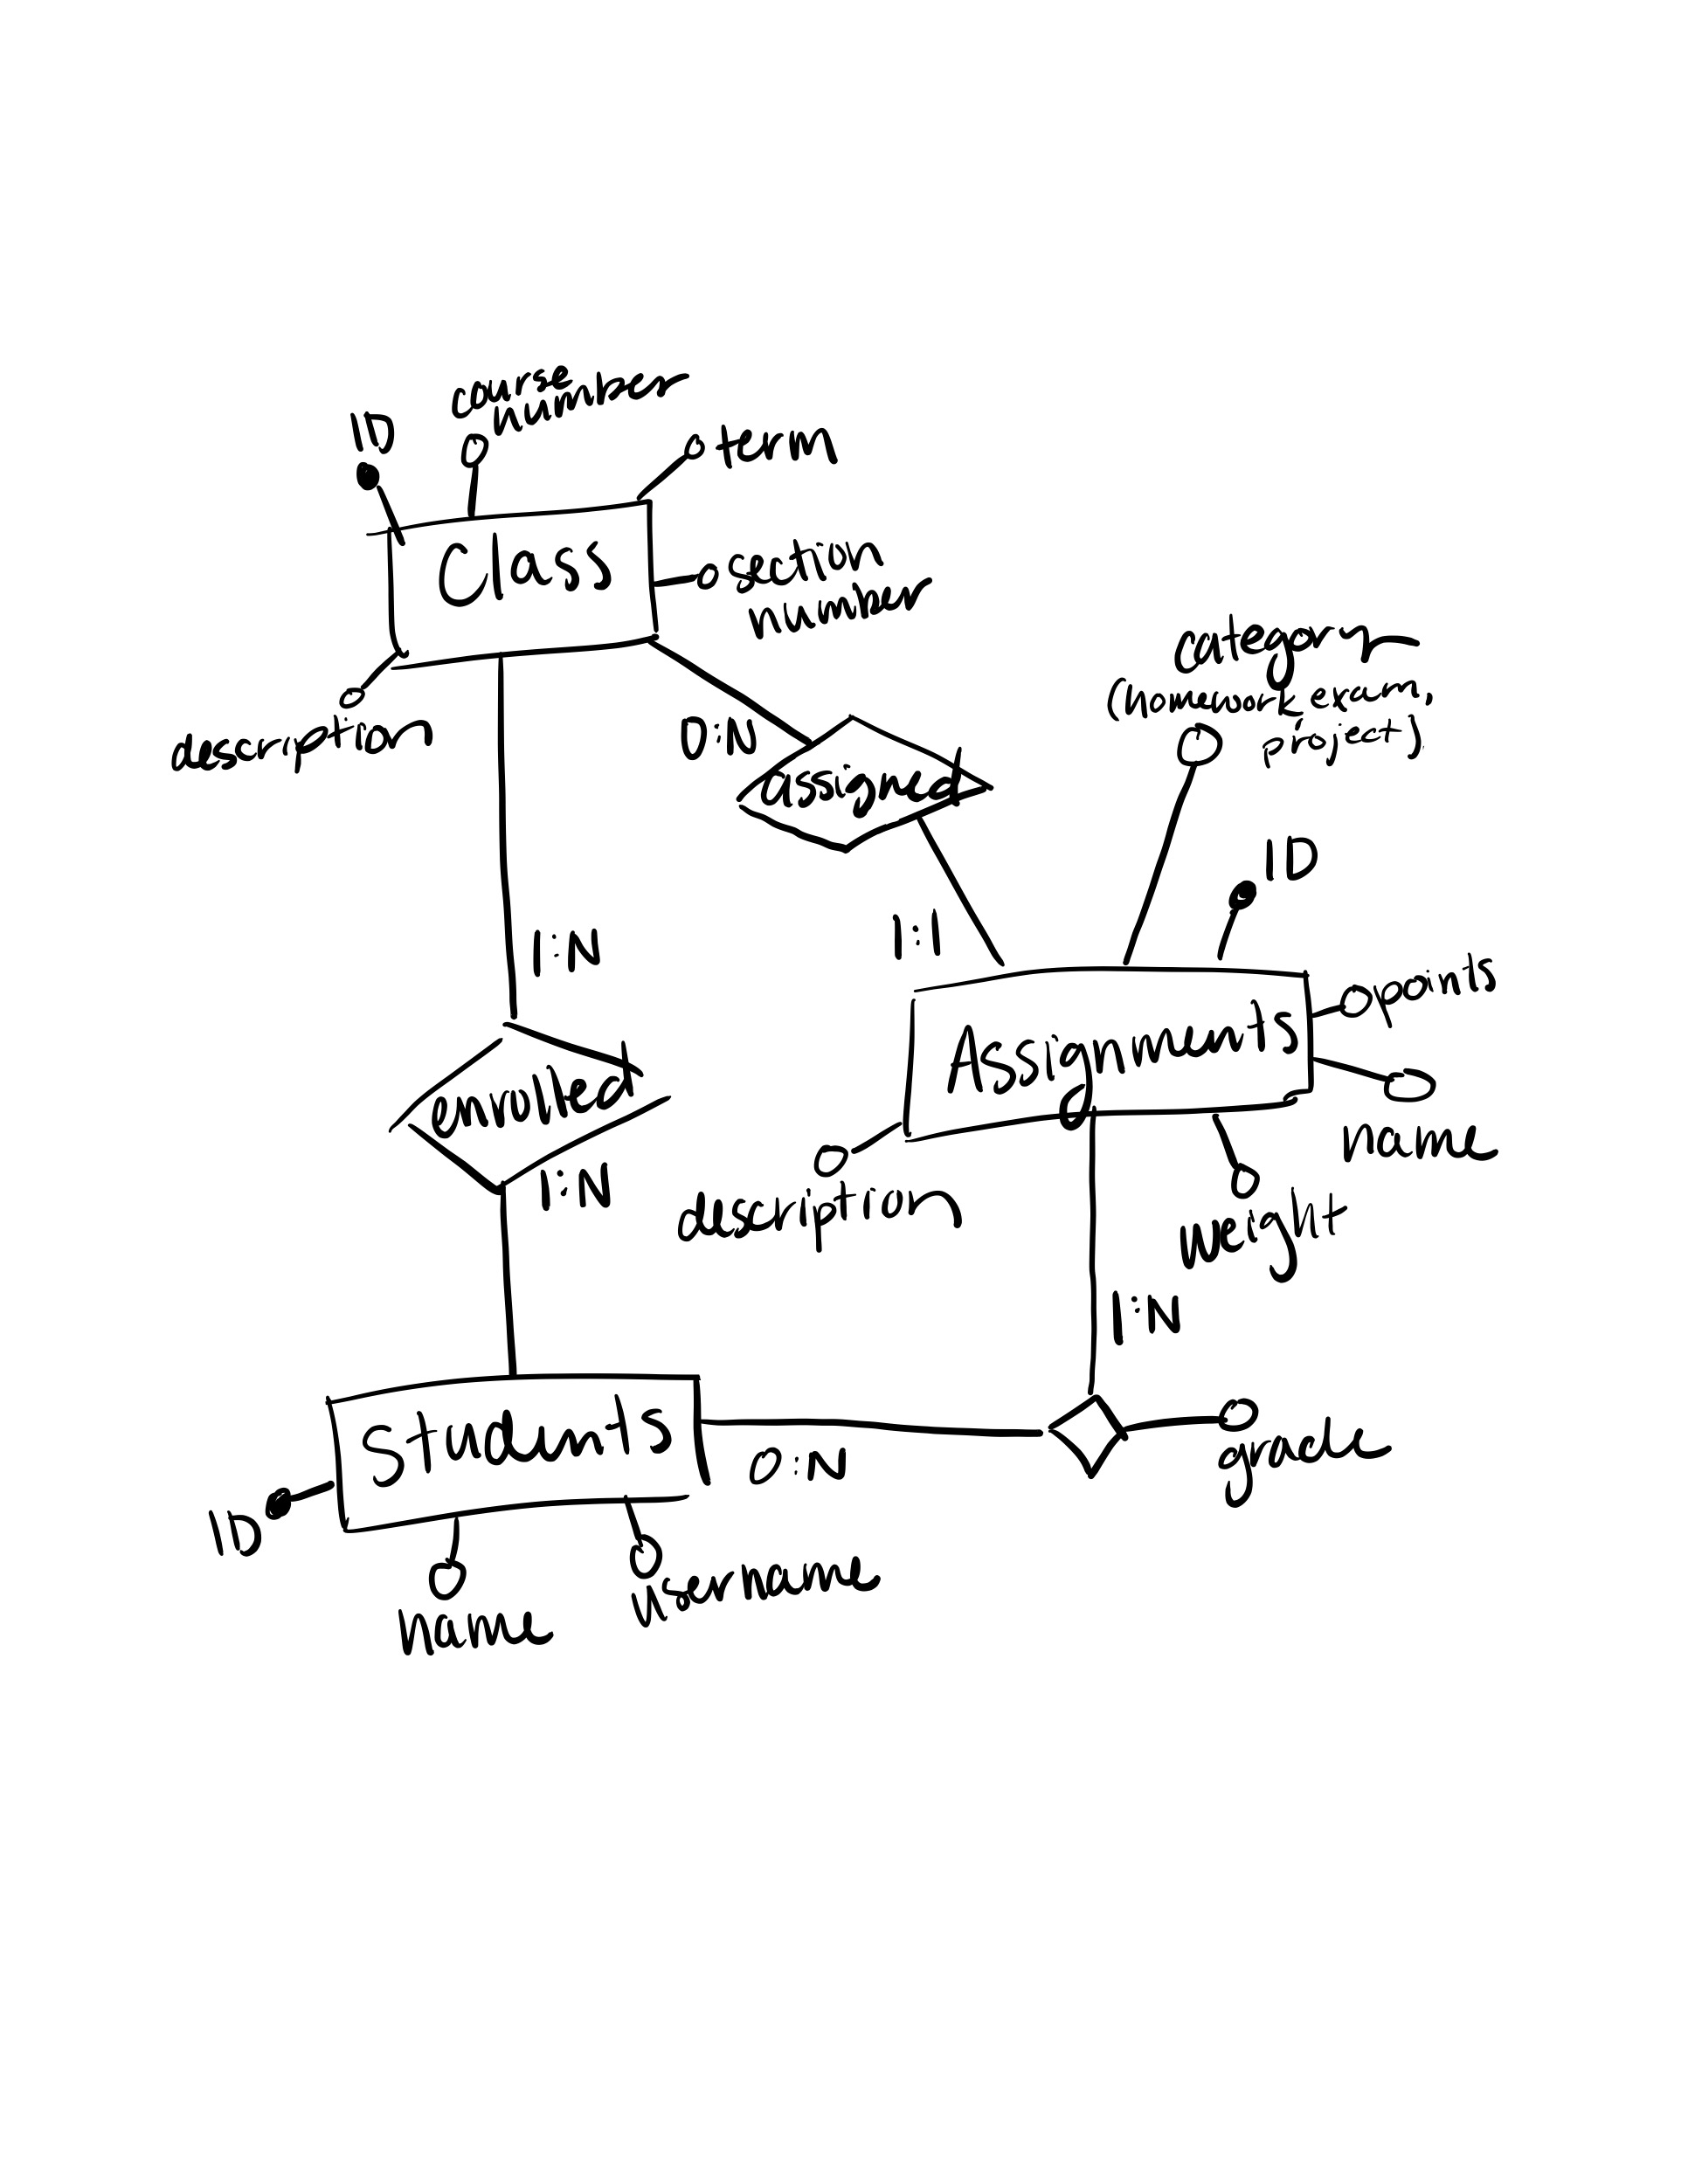 course
number
ID
term
Class
section
number
description
category
(homework, exam,
project)
0:N
assigned
ID
1:N
1:1
points
Assignments
enrolled
name
1:N
description
weight
1:N
Students
0:N
grade
ID
name
username